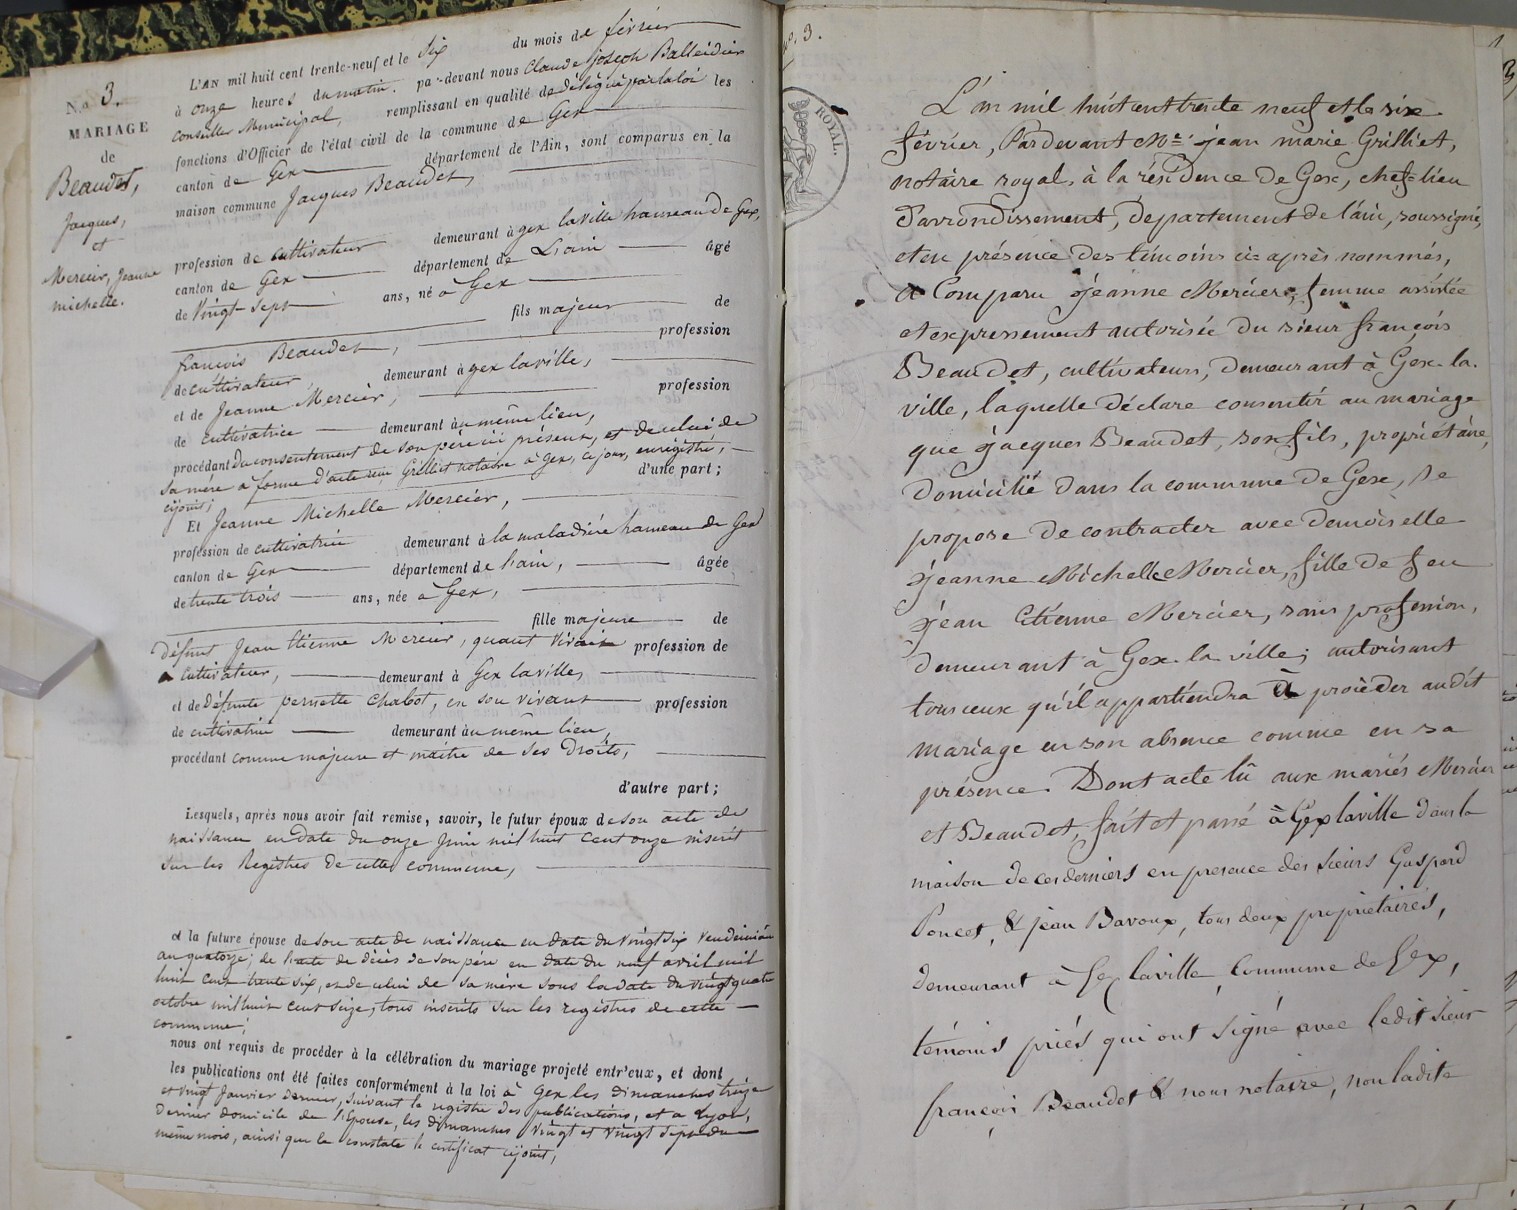 N.o 3.
MARIAGE
de
Beaudet,
Jacques,
et
Mercier, Jeanne
michelle.
L'AN mil huit cent trente-neuf et le Six du mois de février
à onze heures du matin. par-devant nous Claude joseph Balleidier
Conseiller Municipal, remplissant en qualité de délégué par la loi les
fonctions d'Officier de l'état civil de la commune de Gex
canton de Gex département de l'Ain, sont comparus en la
maison commune Jacques Beaudet,
profession de cultivateur demeurant à gex laville hameau de Gex,
canton de Gex département de L'ain âgé
de Vingt Sept ans, né à Gex
fils majeur de
françois Beaudet, profession
de cultivateur, demeurant à gex laville,
et de Jeanne Mercier, profession
de cultivatrice demeurant au même lieu,
procédant du consentement de son père ici présent, et de celui de
sa mère à forme d'acte reçu Grilliet notaire à gex, ce jour, enregistré,
cijoint; d'une part;
Et Jeanne Michelle Mercier,
profession de cultivatrice demeurant à la maladière hameau de Gex
canton de Gex département de l'ain, âgée
de trente trois ans, née à Gex,
fille majeure de
défunt Jean Etienne Mercier, quant vivait profession de
Cultivateur, demeurant à Gex laville,
et de Défunte pernette Chabot, en son vivant profession
de cultivatrice demeurant au même lieu,
procédant comme majeure et maitre de ses Droits,
d'autre part;
Lesquels, après nous avoir fait remise, savoir, le futur époux de son acte de
naissance en date du onze Juin mil huit cent onze inscrit
sur les Registres de cette commune,
et la future épouse de son acte de naissance en date du vingt six Vendémiaire
an quatorze; de l'acte de décès de son père en date du neuf avril mil
huit cent trente six, et de celui de sa mère sous la date du vingt quatre
octobre mil huit cent seize, tous inscrits sur les registres de cette
commune;
nous ont requis de procéder à la célébration du mariage projeté entr'eux, et dont
les publications ont été faites conformément à la loi à Gex les dimanches treize
et vingt Janvier dernier, suivant le registre des publications, et a Lyon,
Dernier domicile de l'Epouse, les dimanches vingt et vingt sept du
même mois, ainsi que le constate le certificat cijoint,
No. 3.
ROYAL.
1
L'an mil huit cent trente neuf et le six
février, Pardevant Me. jean marie Grilliet,
notaire royal, à la résidence de Gex, chef-lieu
d'arrondissement, département de l'ain, soussigné,
et en présence des témoins ci-après nommés,
a Comparu Jeanne Mercier, femme assistée
et expressement autorisée du sieur françois
Beaudet, cultivateur, demeurant à Gex-la-
ville, laquelle déclare consentir au mariage
que Jacques Beaudet, son fils, propriétaire,
domicilié dans la commune de Gex, se
propose de contracter avec demoiselle
Jeanne Michelle Mercier, fille de feu
Jean Etienne Mercier, sans profession,
demeurant à Gex-la-ville; autorisant
tous ceux qu'il appartiendra à procéder audit
mariage en son absence comme en sa
présence. Dont acte lu aux mariés Mercier
et Beaudet, fait et passé à Gex laville dans la
maison de ces derniers en presence des sieurs Gaspard
Poncet, & jean Bavoux, tous deux propriétaires,
demeurant à Gex laville, Commune de Gex,
témoins priés qui ont signé avec ledit sieur
françois Beaudet & nous notaire, non ladite